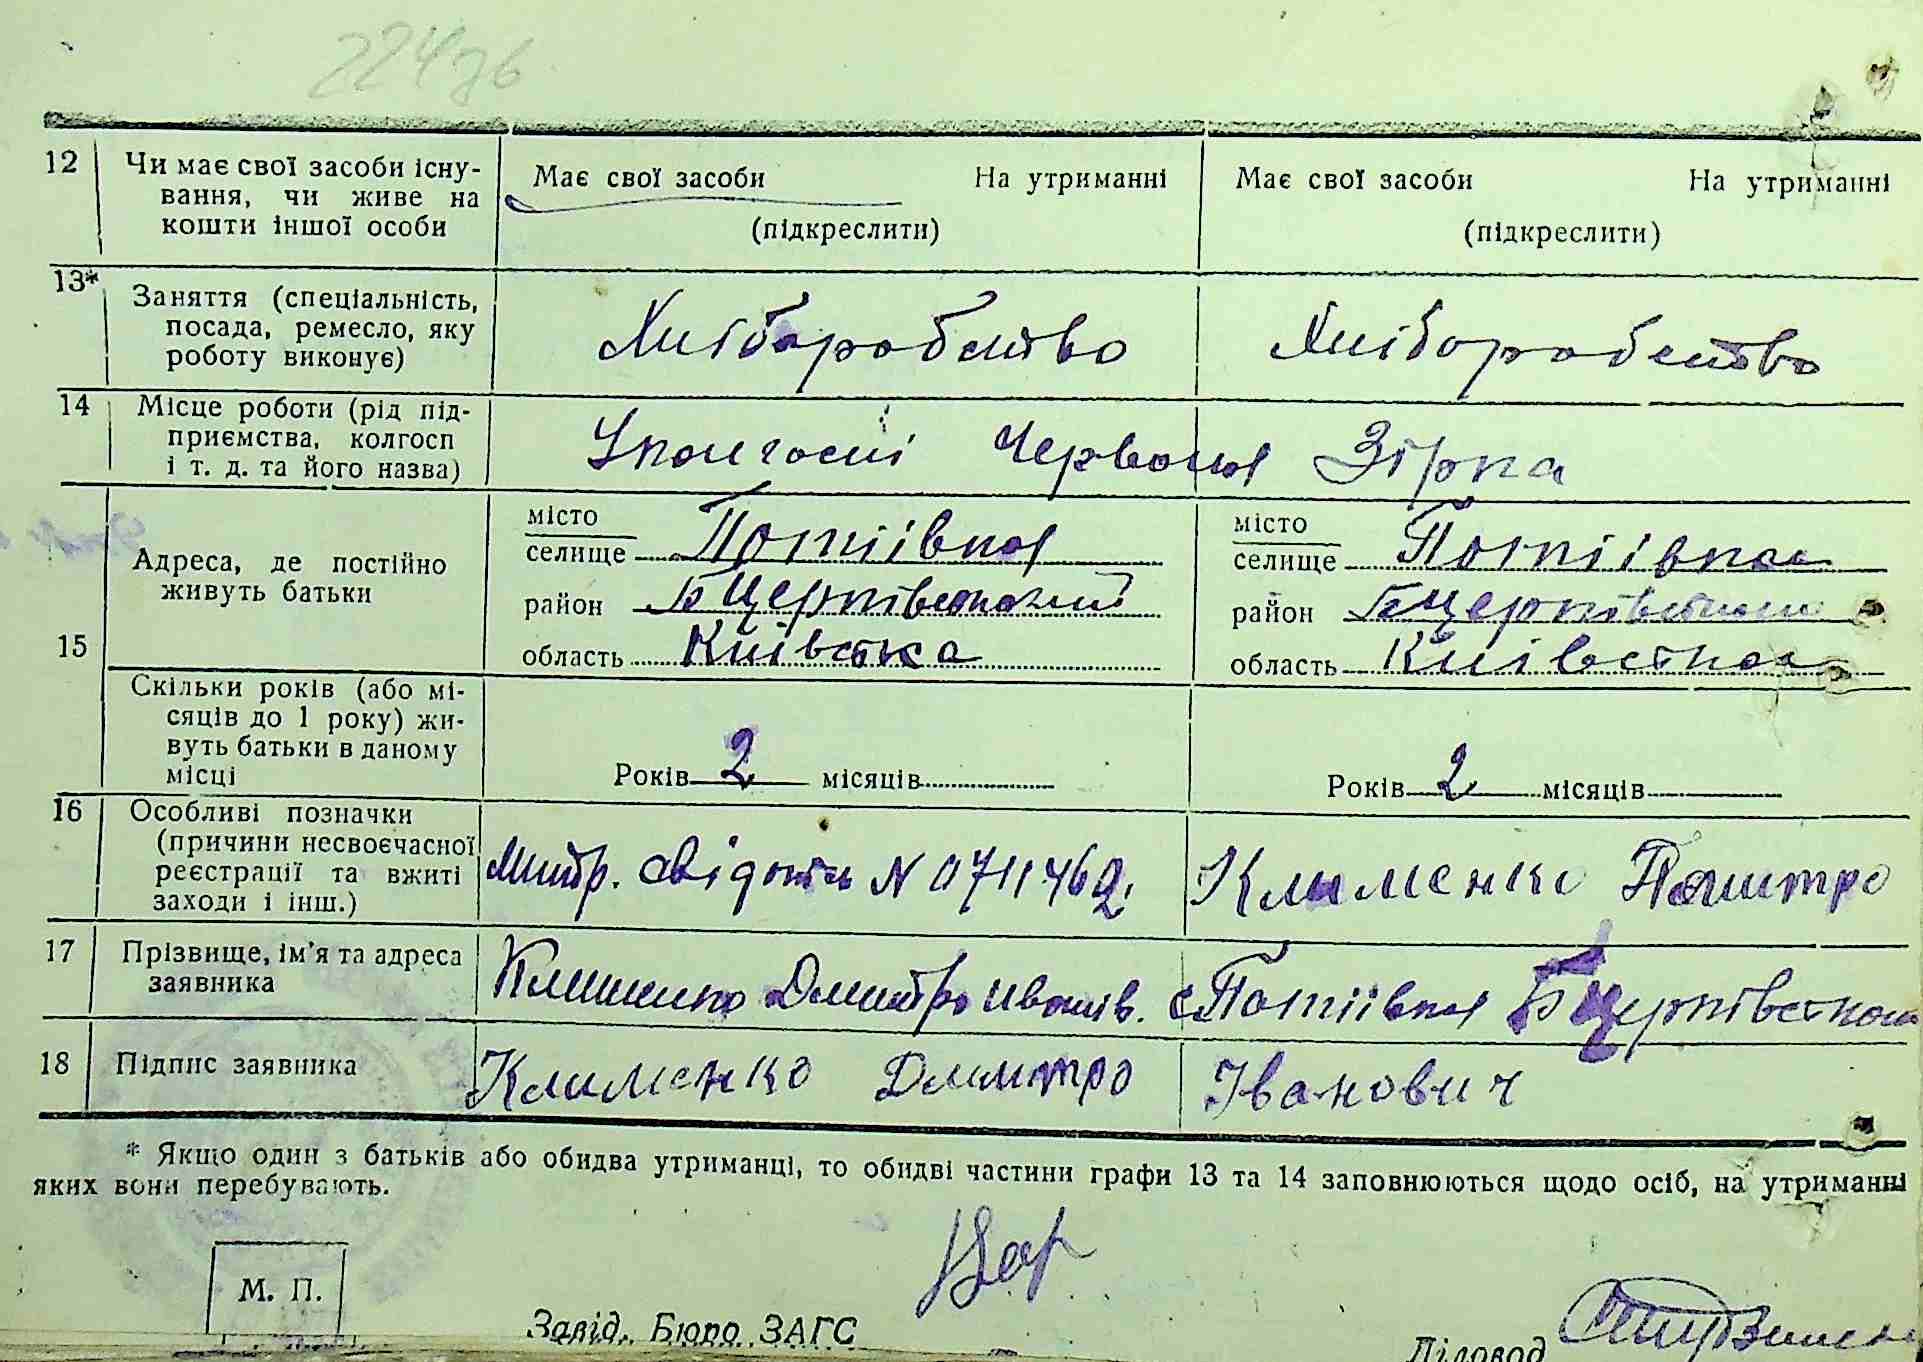 12 Чи має свої засоби існу-
вання, чи живе на
кошти іншої особи
Має свої засоби На утриманні
(підкреслити)
Має свої засоби На утриманні
(підкреслити)
13* Заняття (спеціальність,
посада, ремесло, яку
роботу виконує)
Хліборобство
Хліборобство
14 Місце роботи (рід під-
приємства, колгосп
і т. д. та його назва)
У колгоспі Червона Зірка
15
Адреса, де постійно
живуть батьки
місто
селище Потіївка
район Бцерківський
область Київська
місто
селище Потіївка
район Бцерківський
область Київська
Скільки років (або мі-
сяців до 1 року) жи-
вуть батьки в даному
місці
Років 2 місяців
Років 2 місяців
16 Особливі позначки
(причини несвоєчасної
реєстрації та вжиті
заходи і інш.)
Метр. свідоцтв N 0711462
Клименко Дмитро
17 Прізвище, ім'я та адреса
заявника
Клименко Дмитро Іванів. с Потіївка Бцерківськ
18 Підпис заявника
Клименко Дмитро Іванович
* Якщо один з батьків або обидва утриманці, то обидві частини графи 13 та 14 заповнюються щодо осіб, на утриманні
яких вони перебувають.
М. П.
Завід. Бюро ЗАГС
Діловод